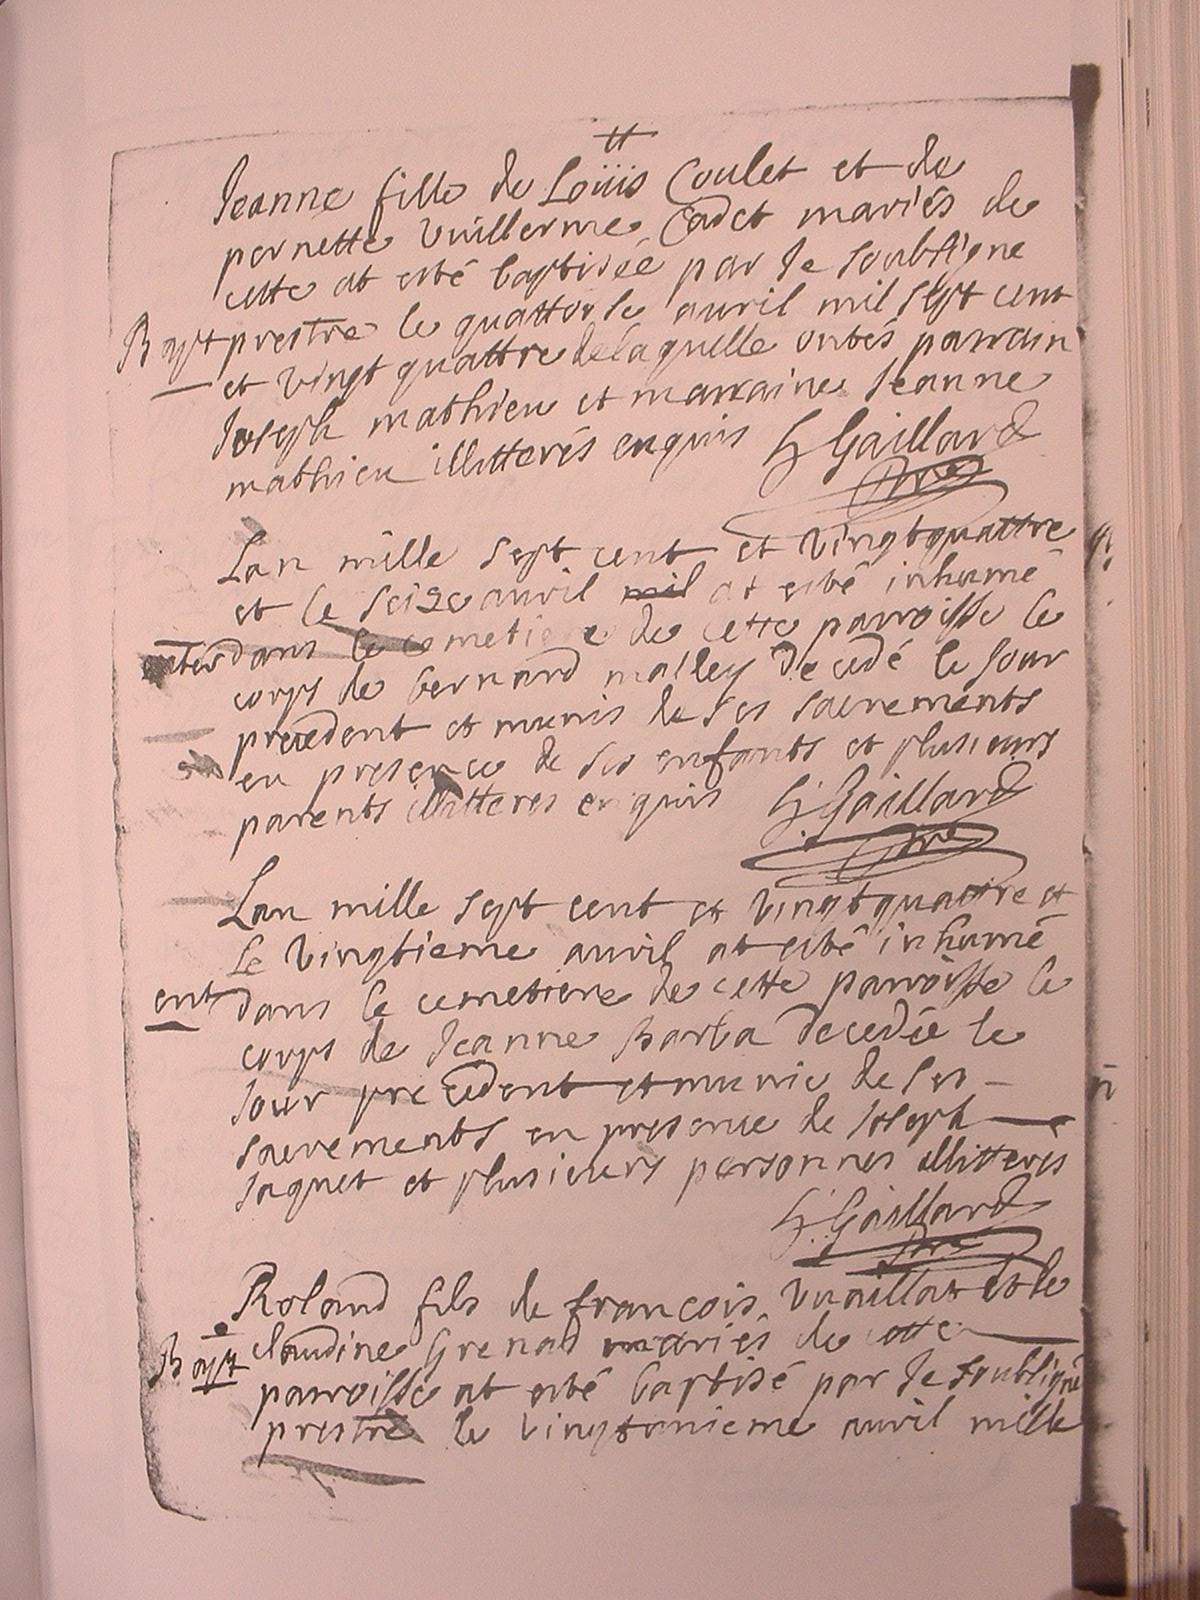 Jeanne fille de Loüis Coulet et de
pernette Vuillerme Cadet mariés de
cette at esté baptisée par Je soubsigne
Bapt prestre le quattorse auril mil sept cent
et vingt quattre de laquelle ontés parrain
Joseph mathieu et marraine Jeanne
mathieu illitterés enquis Gaillard
Lan mille sept cent et vingtquattre
et le seize auril mil at esté inhumé
enter dans le cemetiere de cette parroisse le
corps de bernard malley decedé le Jour
precedent et munis de ses sacrements
en presence de ses enfants et plusieurs
parents illitteres enquis Gaillard
Lan mille sept cent et vingtquattre et
le vingtieme auril at esté inhumé
ent dans le cemetiere de cette parroisse le
corps de Jeanne Barba decedée le
Jour precedent et munie de ses
sacrements en presence de Joseph
Jaquet et plusieurs personnes illitteres
Gaillard
Roland fils de françois Vuaillat et de
Bapt claudine Grenad mariés de cette
parroisse at esté baptisé par Je soubsigné
prestre le vingtunieme auril mille